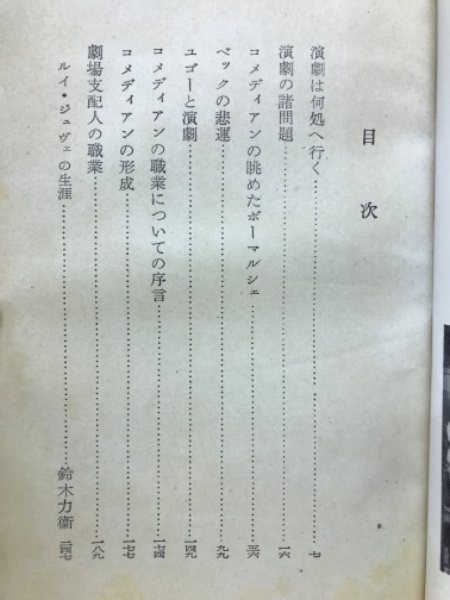 目次
演劇は何処へ行く……七
演劇の諸問題……一六
コメディアンの眺めたボーマルシェ……三六
ベックの悲運……九九
ユゴーと演劇……一四九
コメディアンの職業についての序言……一七四
コメディアンの形成……一七七
劇場支配人の職業……一八九
ルイ・ジュヴェの生涯……鈴木力衛